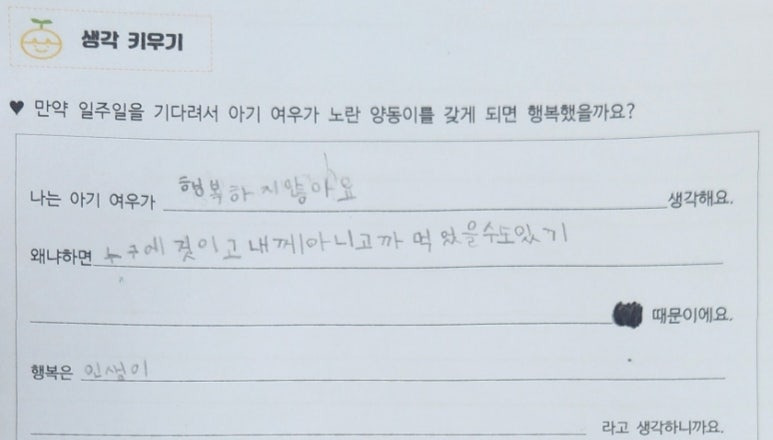 생각 키우기
♥ 만약 일주일을 기다려서 아기 여우가 노란 양동이를 갖게 되면 행복했을까요?
나는 아기 여우가 행복하지않아요 생각해요.
왜냐하면 누구에 것이고 내께아니고까 먹었을수도있기
때문이에요.
행복은 인썸이
라고 생각하니까요.